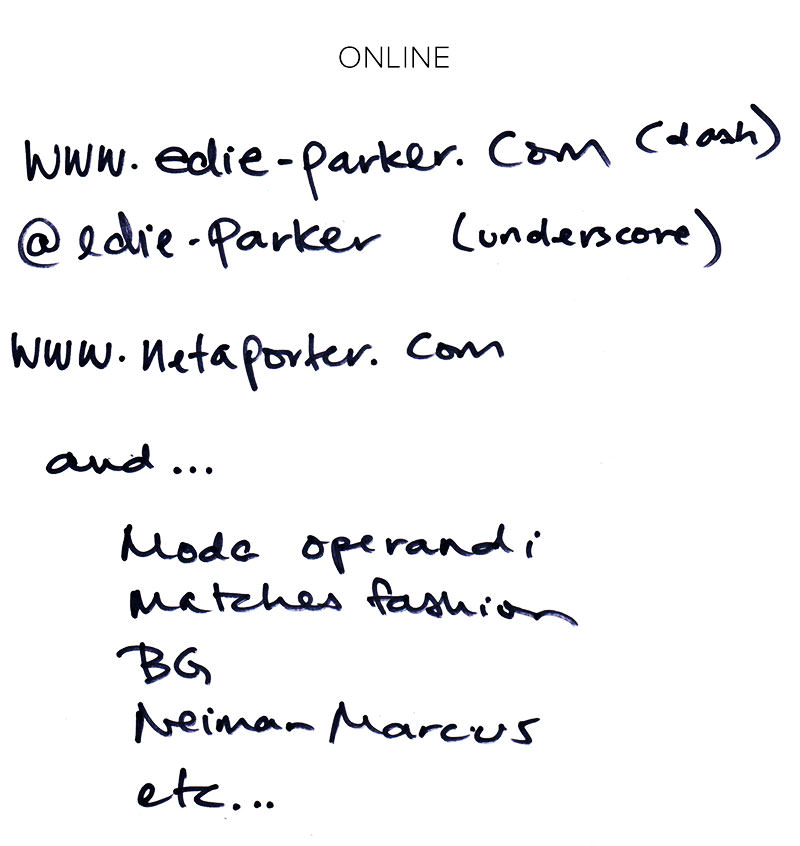 ONLINE
www.edie-parker.com (dash)
@edie-parker (underscore)
www.netaporter.com
and...
Moda operandi
Matches fashion
BG
Neiman Marcus
etc...